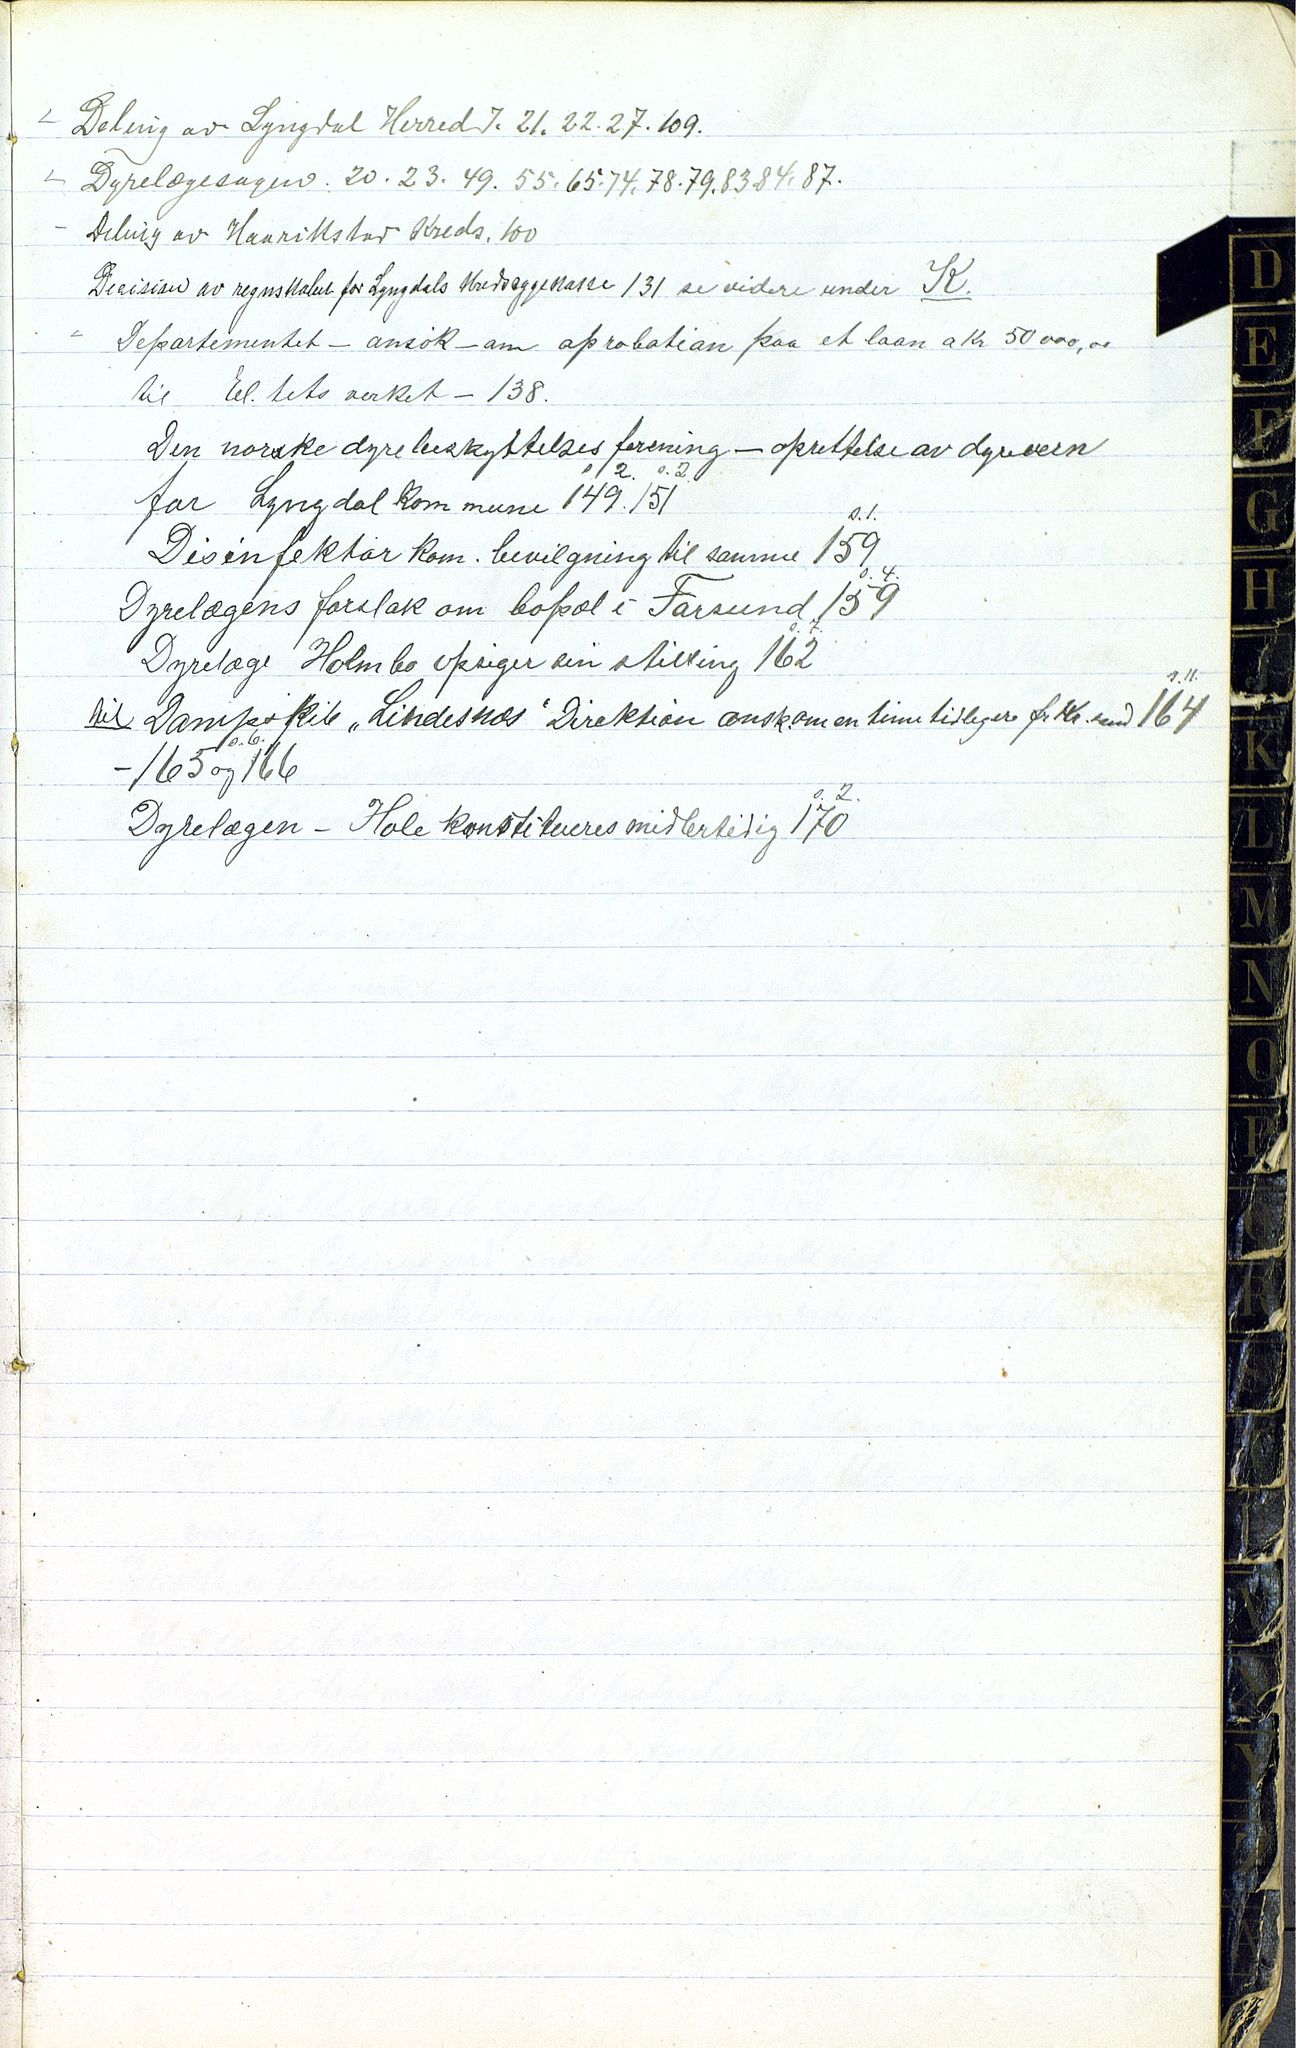 Deling av Lyngdal Herred 7. 21. 22. 27. 109.
Dyrelægesagen. 20. 23. 49. 55. 65. 74. 78. 79. 83 84. 87.
Deling av Haarikstad Kreds. 100
Decision av regnskabet for Lyngdals Kredssygekasse 131 se videre under K.
Departementet - ansøk - om aprobation paa et laan a kr 50 000,00
til El. tets verket - 138.
Den norske dyrebeskyttelses forening - oprettelse av dyrevern
s. 2. s. 2
for Lyngdal kommune 149. 151
s. 1.
Disinfektør kom. bevilgning til samme 159
s. 4.
Dyrelægens forslak om bopæl i Farsund 159
s. 7.
Dyrelæge Holmbo opsiger sin stilling 162
s. 11.
til Dampskib „Lindesnæs" Direktion ansk. om en time tidligere fr. Kr. sand 164
s. 6.
- 165 og 166
s. 2.
Dyrelægen - Hole konstitueres midlertidig 170
D
E
F
G
H
J
K
L
M
N
O
P
Q
R
S
V
Y